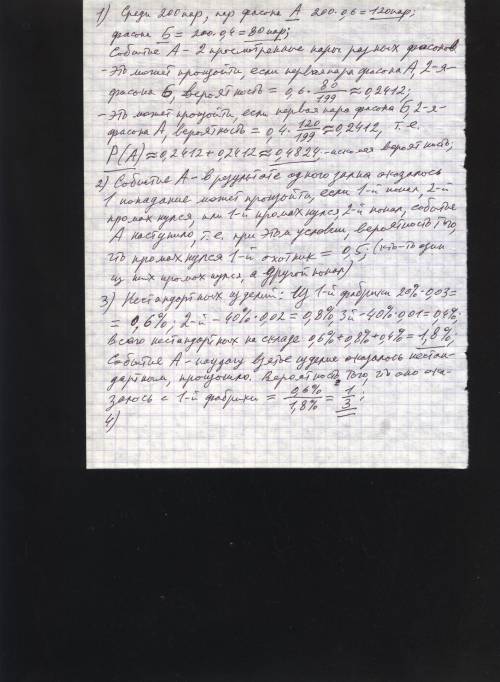 1) Среди 200 пар, пар фасона А 200·0,6 = 120 пар;
фасона Б = 200·0,4 = 80 пар;
Событие А - 2 просмотренные пары разных фасонов
- Это может произойти, если первая пара фасона А, 2-я-
фасона Б, вероятность = 0,6 · 80/199 ≈ 0,2412;
- Это может произойти, если первая пара фасона Б, 2-я-
фасона А, вероятность = 0,4 · 120/199 ≈ 0,2412, т.е.
P(A) ≈ 0,2412 + 0,2412 ≈ 0,4824 - искомая вероятность;
2) Событие А - в результате одного залпа оказалось
1 попадание может произойти, если 1-й попал, 2-й
промахнулся, или 1-й промахнулся, 2-й попал, событие
А наступило, т.е. при этом условии, вероятность того,
что промахнулся 1-й охотник = 0,5; (кто-то один
из них промахнулся, а другой попал)
3) Нестандартных изделий: Из 1-й фабрики 20%·0,03=
= 0,6%; 2-й - 40%·0,02 = 0,8%, 3й - 40%·0,01 = 0,4%;
Всего нестандартных на складе: 0,6%+0,8%+0,4% = 1,8%,
Событие А - наудачу взятое изделие оказалось нестан-
дартным, произошло. Вероятность того, что оно ока-
залось с 1-й фабрики = 0,6%/1,8% = 1/3;
4)